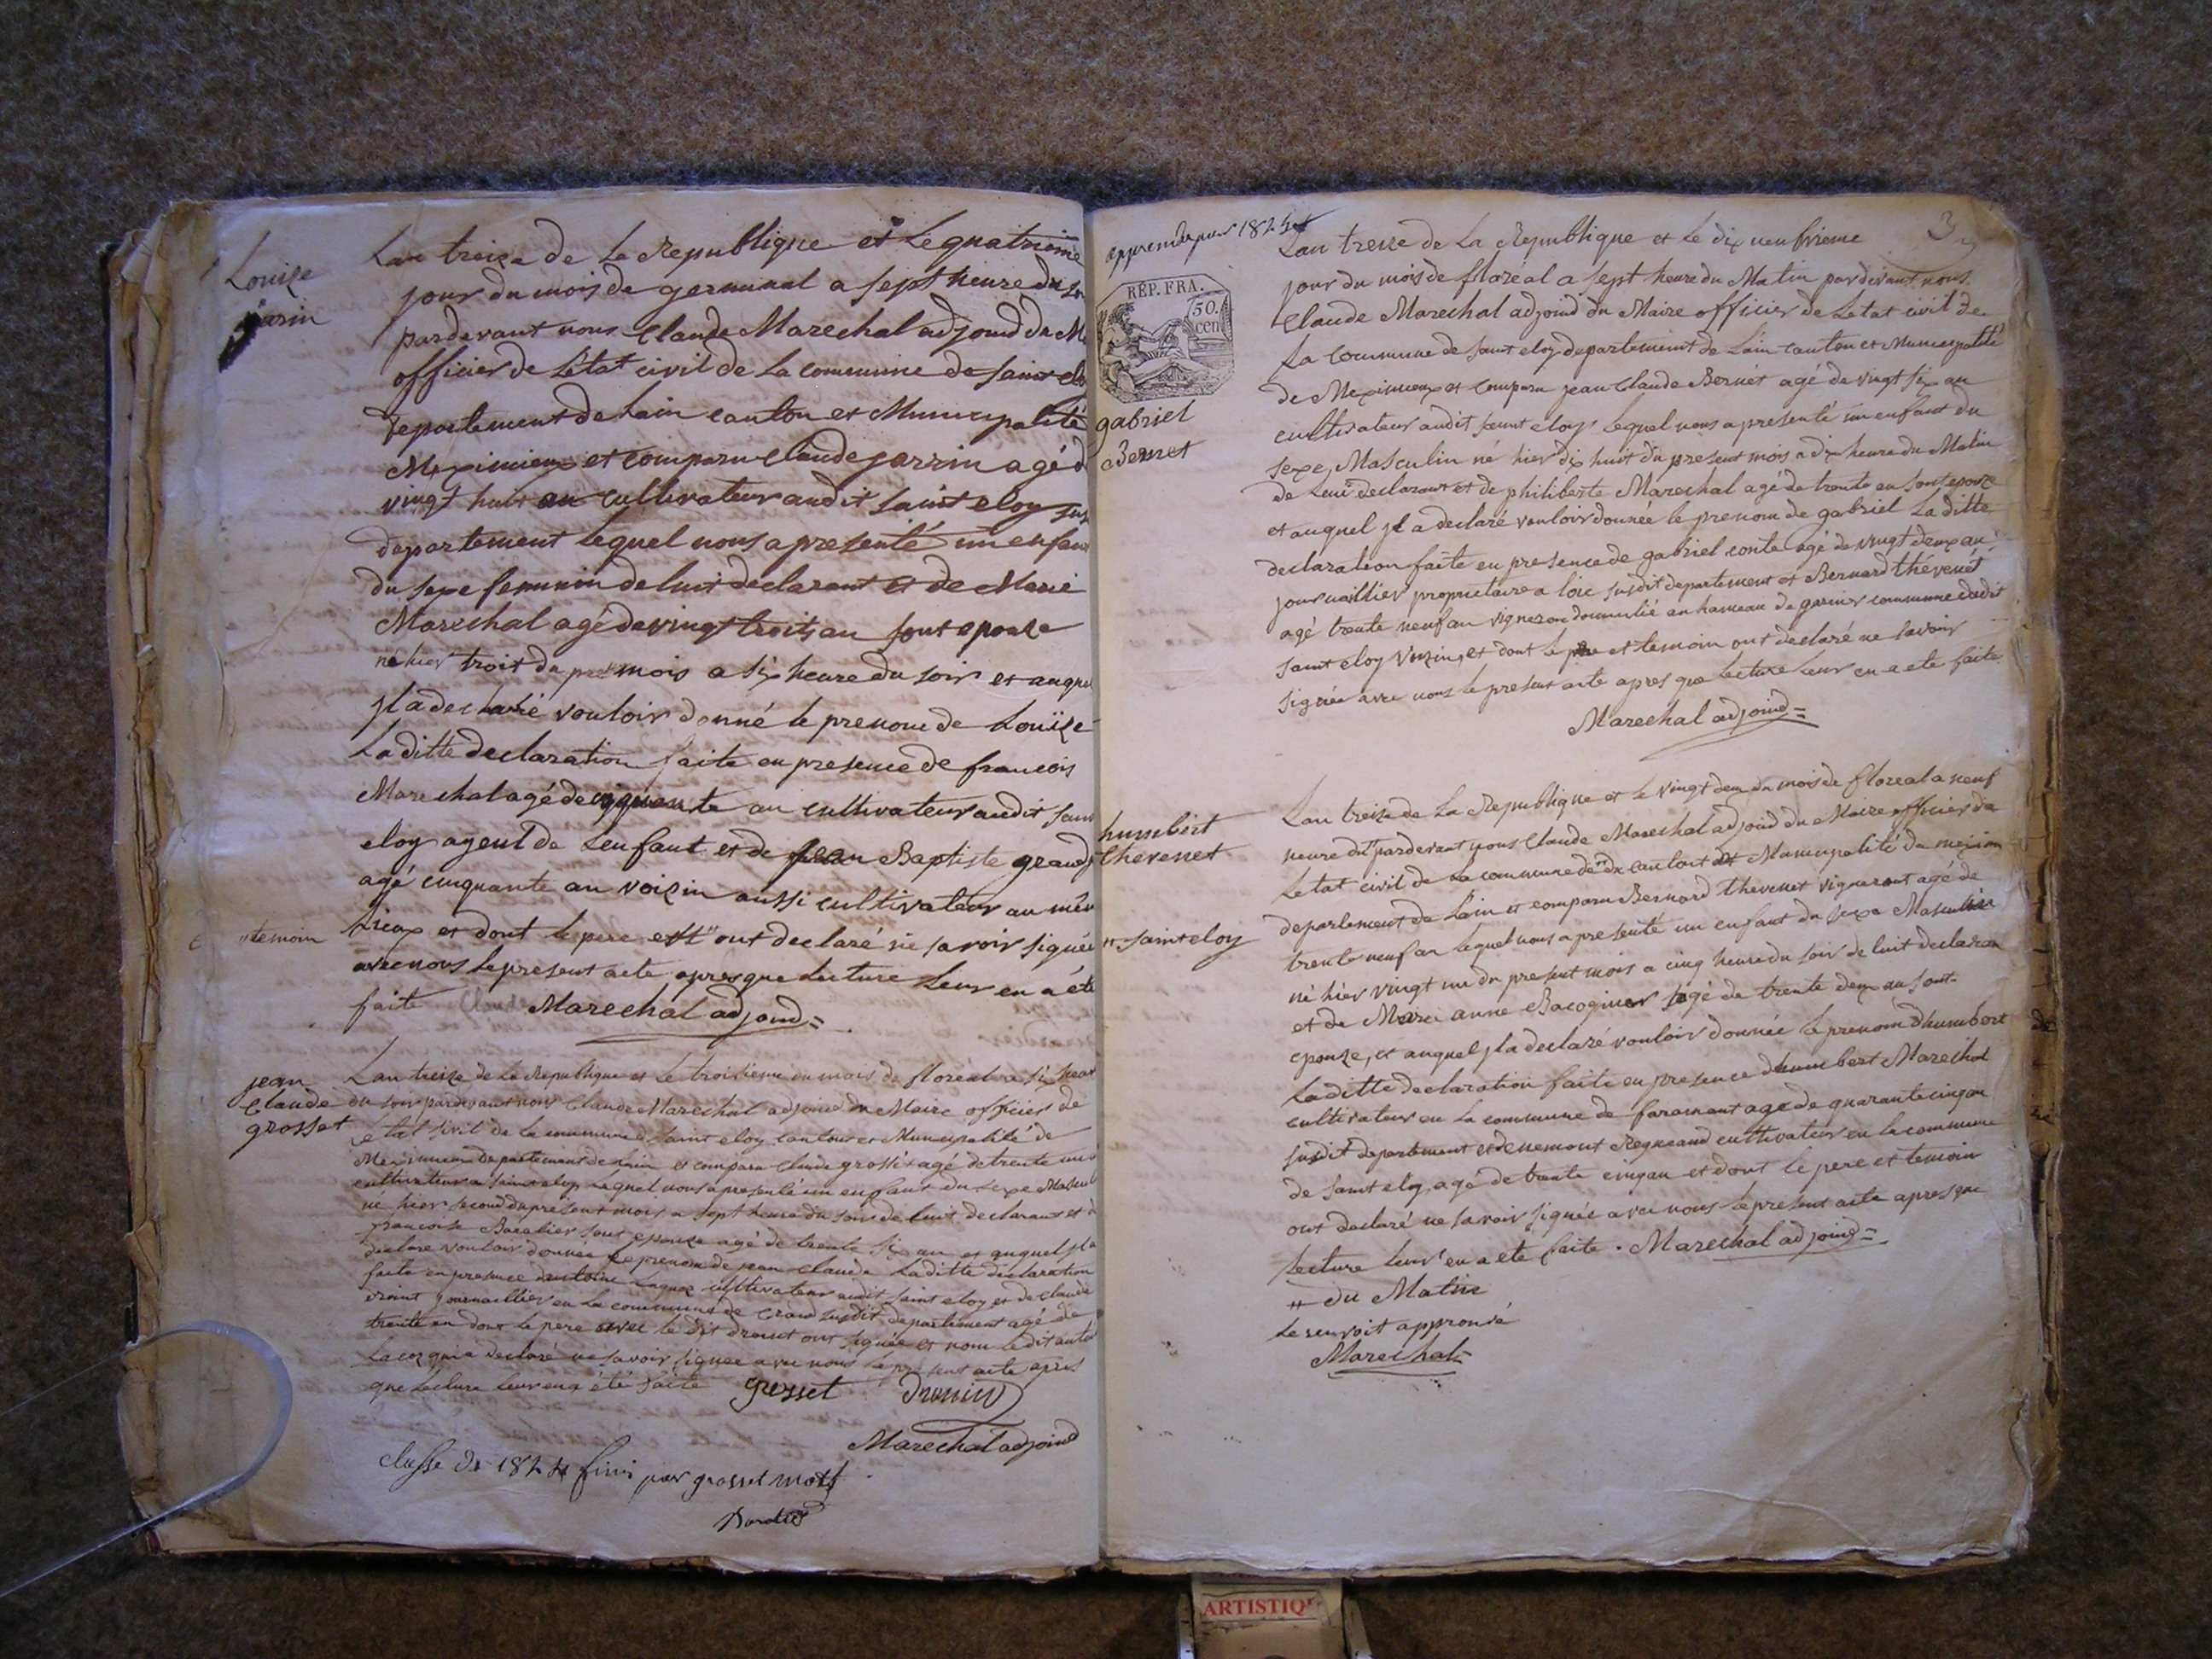 Louize
jarin
Lan treize de la Republique et le quatrieme
jour du mois de germinal a sept heure du
pardevant nous Claude Marechal adjoind du M
officier de letat civil de la commune de saint elo
departement de lain canton et Municipalité
Meximieux et comparu Claude jarrin agé d
vingt huit an cultivateur audit saint eloy sus
departement lequel nous apresenté un enfan
du sexe feminin de luit declarant et de Marie
Marechal agé de vingt troits an sont epouze
né hier troit du pnt mois a six heure du soir et auquel
jl a declaré vouloir donné le prenom de Louïze
Laditte declaration faite en presence de francois
Marechal agé de cinquante an cultivateur audit sain
eloy ageul de lenfant et de jean Baptiste grand
agé cinquante an voizin aussi cultivateur au mêm
Lieux et dont le pere et " ont declaré ne savoir signée
"temoin
avec nous le present acte apres que lecture leur en a été
faite Marechal adjoind
jean
Claude
grosset
Lan treize de la Republique et le troisieme du mois de floréal a six heur
du soir pardevant nous Claude Marechal adjoind du Maire officier de
letat sivil de la commune de saint eloy cantont et Municipalité de
Meximieux departement de lain et comparu Claude grosset agé de trente
cultivateur a saint eloy lequel nous a presenté un enfant du sexe Mascul
né hier second du present mois a sept heure du soir de luit declarant et d
francoise sont epouze agé de trente six an et auquel jl a
declare vouloir donnée le prenom de jean Claude Laditte declaration
faite en presence dantoine cultivateur audit saint eloy et de Claude
journaillier en la commune de Crand susdit departement agé de
trente an dont le pere avec le dit drouit ont signée et nom ledit
a declaré ne savoir signée avec nous le present acte apres
que lecture leur en a été faite grosset
Marechal adjoind
classe de 1824 fini par grosset
3
Lan treize de La Republique et le dix neufvieme
jour du mois de floréal a sept heure du Matin pardevant nous
Claude Marechal adjoind du Maire officier de Letat civil de
La commune de saint eloy departement de Lain canton et Municipalité
de Meximieux et comparu jean Claude Bernet agé de vingt six an
cultivateur audit saint eloy lequel nous a presenté un enfant du
sexe Masculin né hier dix huit du present mois a dix heure du Matin
de luit declarant et de philiberte Marechal agé de trente an sont epouze
et auquel jl a declaré vouloir donnée le prenom de gabriel La ditte
declaration faite en presence de gabriel conte agé de vingt deux an
journaillier proprietaire a loie susdit departement et Bernard thévenét
agé trente neuf an vigneron domicilié au hameau de commune dudit
saint eloy voizin, et dont le pere et temoin ont declaré ne savoir
signée avec nous le present acte apres que lecture leur en a ete faite
Marechal adjoind
REP. FRA.
50.
cen
gabriel
Bernet
humbert
thevenet
Lan treize de La Republique et le vingt deux du mois de floreal a neuf
heure du" pardevant nous Claude Marechal adjoind du Maire officier de
Letat civil de La commune de" de cantont et Municipalité de
departement de Lain et comparu Bernard thevenet vigneront agé de
trente neuf an lequel nous a presenté un enfant du sexe Masculin
" saint eloy
né hier vingt un du present mois a cinq heure du soir de luit declaran
et de Marie anne agé de trente deux an sont
epouze, et auquel jl a declaré vouloir donnée le prenom dhumbert
Laditte declaration faite en presence dhumbert Marechal
cultivateur en la commune de faramant agé de quarante cinq an
susdit departement et Regneand cultivateur en la commune
de saint eloy agé de trente cinq an et dont le pere et temoin
ont declaré ne savoir signée avec nous le present acte apres que
lecture leur en a ete faite. Marechal adjoind
" du Matin
le renvoit approuvé
Marechal
ARTISTIQ